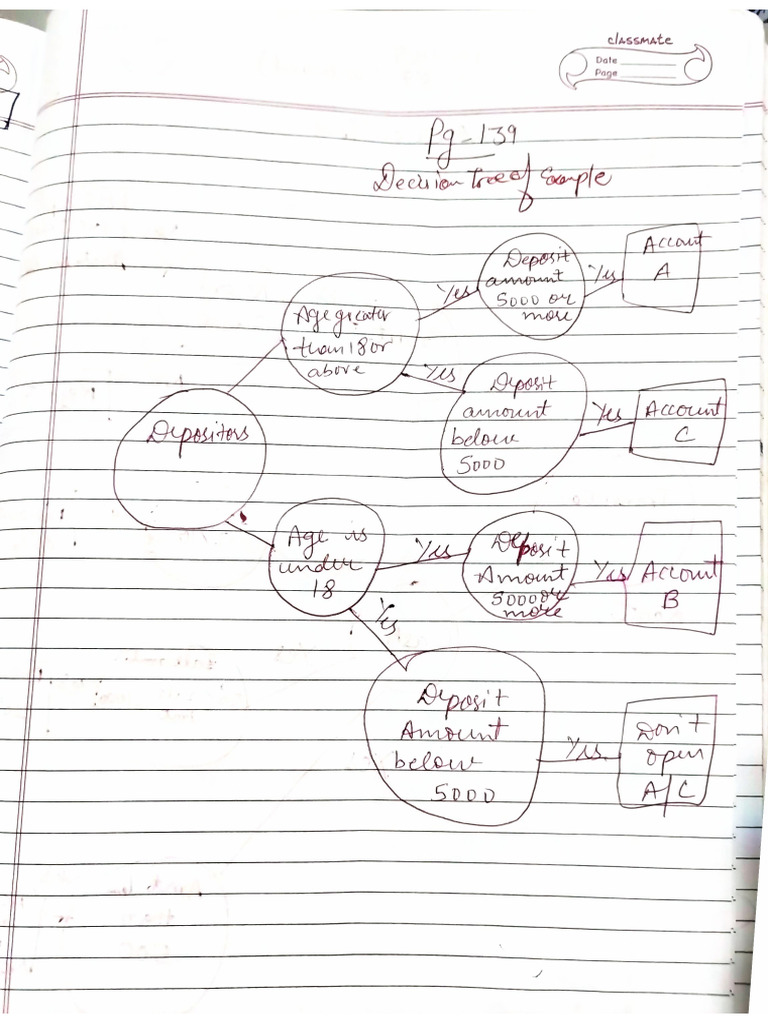 classmate
Date
Page
Pg-139
Decision Tree of Example
Depositors
Age greater
than 18 or
above
Yes
Deposit
amount
5000 or
more
Yes
Accout
A
Yes
Deposit
amount
below
5000
Yes
Account
C
Age is
under
18
Yes
Deposit
Amount
5000 or
more
Yes
Account
B
Yes
Deposit
Amount
below
5000
Yes
Don't
open
A/C